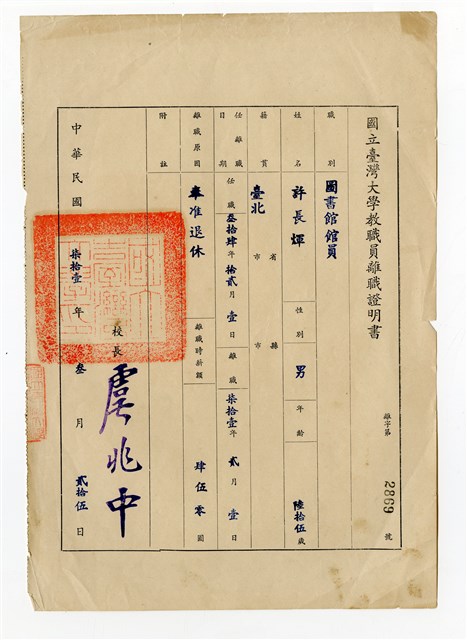 國立臺灣大學教職員離職證明書
離字第 2869 號
職別 圖書館館員
姓名 許長煇 性別 男 年齡 陸拾伍歲
籍貫 臺北 省市 縣市
任離職日期 任職 叁拾肆年拾貳月壹日 離職 柒拾壹年貳月壹日
離職原因 奉准退休 離職時薪額 肆伍零 圓
附註
校長 虞兆中
中華民國柒拾壹年叁月貳拾伍日